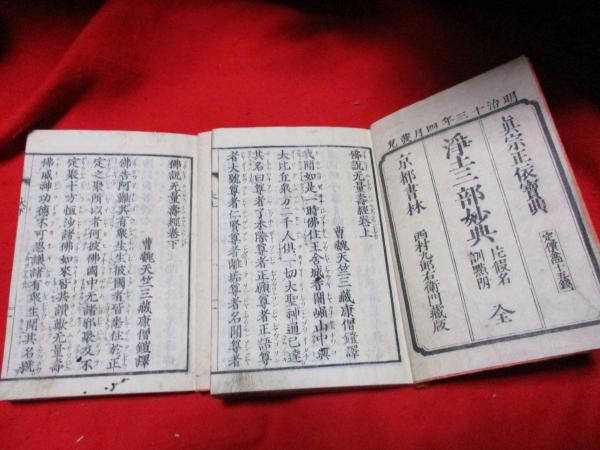 明治十三年四月發兌
眞宗正依寶典
淨土三部妙典
片假名
訓點附
全
定價金十五錢
京都書林
西村九郎右衛門藏版
佛說无量壽經卷上
曹魏天竺三藏康僧鎧譯
我聞如是一時佛住王舍城耆闍崛山中與
大比丘衆万二千人俱一切大聖神通已達
其名曰尊者了本際尊者正願尊者正語尊
者大號尊者仁賢尊者離垢尊者名聞尊者
佛說无量壽經卷下
曹魏天竺三藏康僧鎧譯
佛告阿難其有衆生生彼國者皆悉住於正
定之聚所以者何彼佛國中无諸邪聚及不
定聚十方恒沙諸佛如來皆共讚歎无量壽
佛威神功德不可思議諸有衆生聞其名號